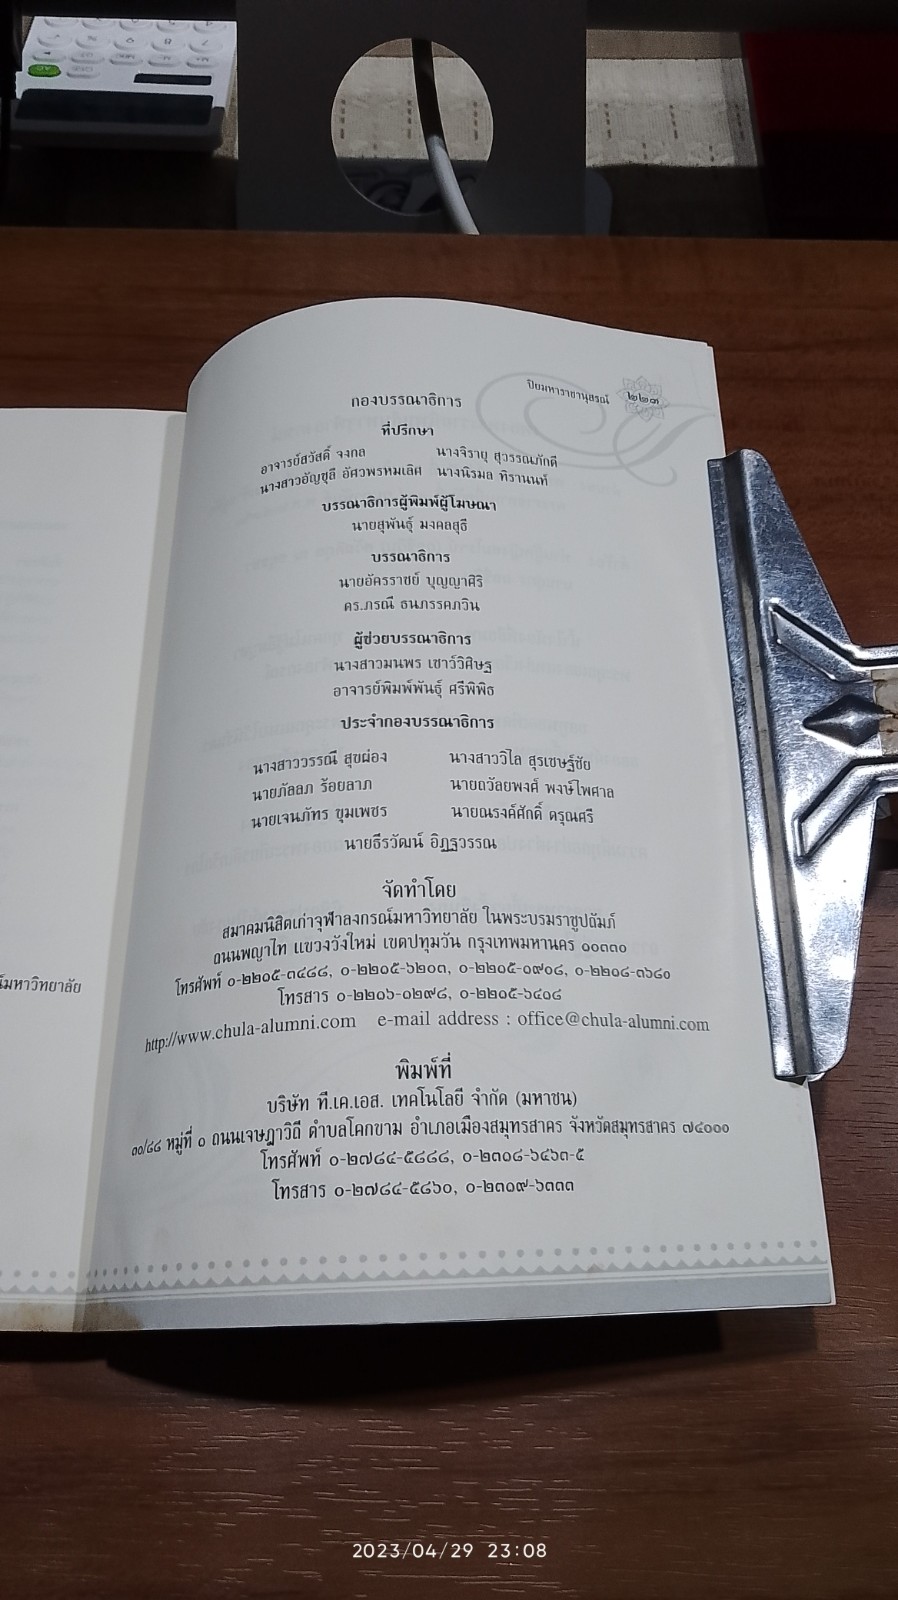 ปิยมหาราชานุสรณ์ ๒๒๓
กองบรรณาธิการ
ที่ปรึกษา
อาจารย์สวัสดิ์ จงกล นางจิรายุ สุวรรณภักดี
นางสาวอัญชุลี อัศวพรหมเลิศ นางนิรมล ทิรานนท์
บรรณาธิการผู้พิมพ์ผู้โฆษณา
นายสุพันธุ์ มงคลสุธี
บรรณาธิการ
นายอัครราชย์ บุญญาศิริ
ดร.ภรณี ธนภรรคภวิน
ผู้ช่วยบรรณาธิการ
นางสาวมนพร เชาว์วิศิษฐ
อาจารย์พิมพ์พันธุ์ ศรีพิพิธ
ประจำกองบรรณาธิการ
นางสาววรรณี สุขผ่อง นางสาววิไล สุรเชษฐ์ชัย
นายภัลลภ ร้อยลาภ นายถวัลยพงศ์ พงษ์ไพศาล
นายเจนภัทร ชุมเพชร นายณรงค์ศักดิ์ ดรุณศรี
นายธีรวัฒน์ อิฏฐวรรณ
จัดทำโดย
สมาคมนิสิตเก่าจุฬาลงกรณ์มหาวิทยาลัย ในพระบรมราชูปถัมภ์
ถนนพญาไท แขวงวังใหม่ เขตปทุมวัน กรุงเทพมหานคร ๑๐๓๓๐
โทรศัพท์ ๐-๒๒๑๕-๓๔๘๘, ๐-๒๒๑๕-๖๒๐๓, ๐-๒๒๑๕-๑๙๐๘, ๐-๒๒๑๘-๓๖๘๐
โทรสาร ๐-๒๒๑๖-๑๒๙๘, ๐-๒๒๑๕-๖๔๑๘
http://www.chula-alumni.com e-mail address : office@chula-alumni.com
พิมพ์ที่
บริษัท ที.เค.เอส. เทคโนโลยี จำกัด (มหาชน)
๓๐/๘๘ หมู่ที่ ๑ ถนนเจษฎาวิถี ตำบลโคกขาม อำเภอเมืองสมุทรสาคร จังหวัดสมุทรสาคร ๗๔๐๐๐
โทรศัพท์ ๐-๒๗๘๔-๕๘๘๘, ๐-๒๓๑๘-๖๔๖๓-๕
โทรสาร ๐-๒๗๘๔-๕๘๖๐, ๐-๒๓๑๙-๖๓๓๓
์มหาวิทยาลัย
2023/04/29 23:08